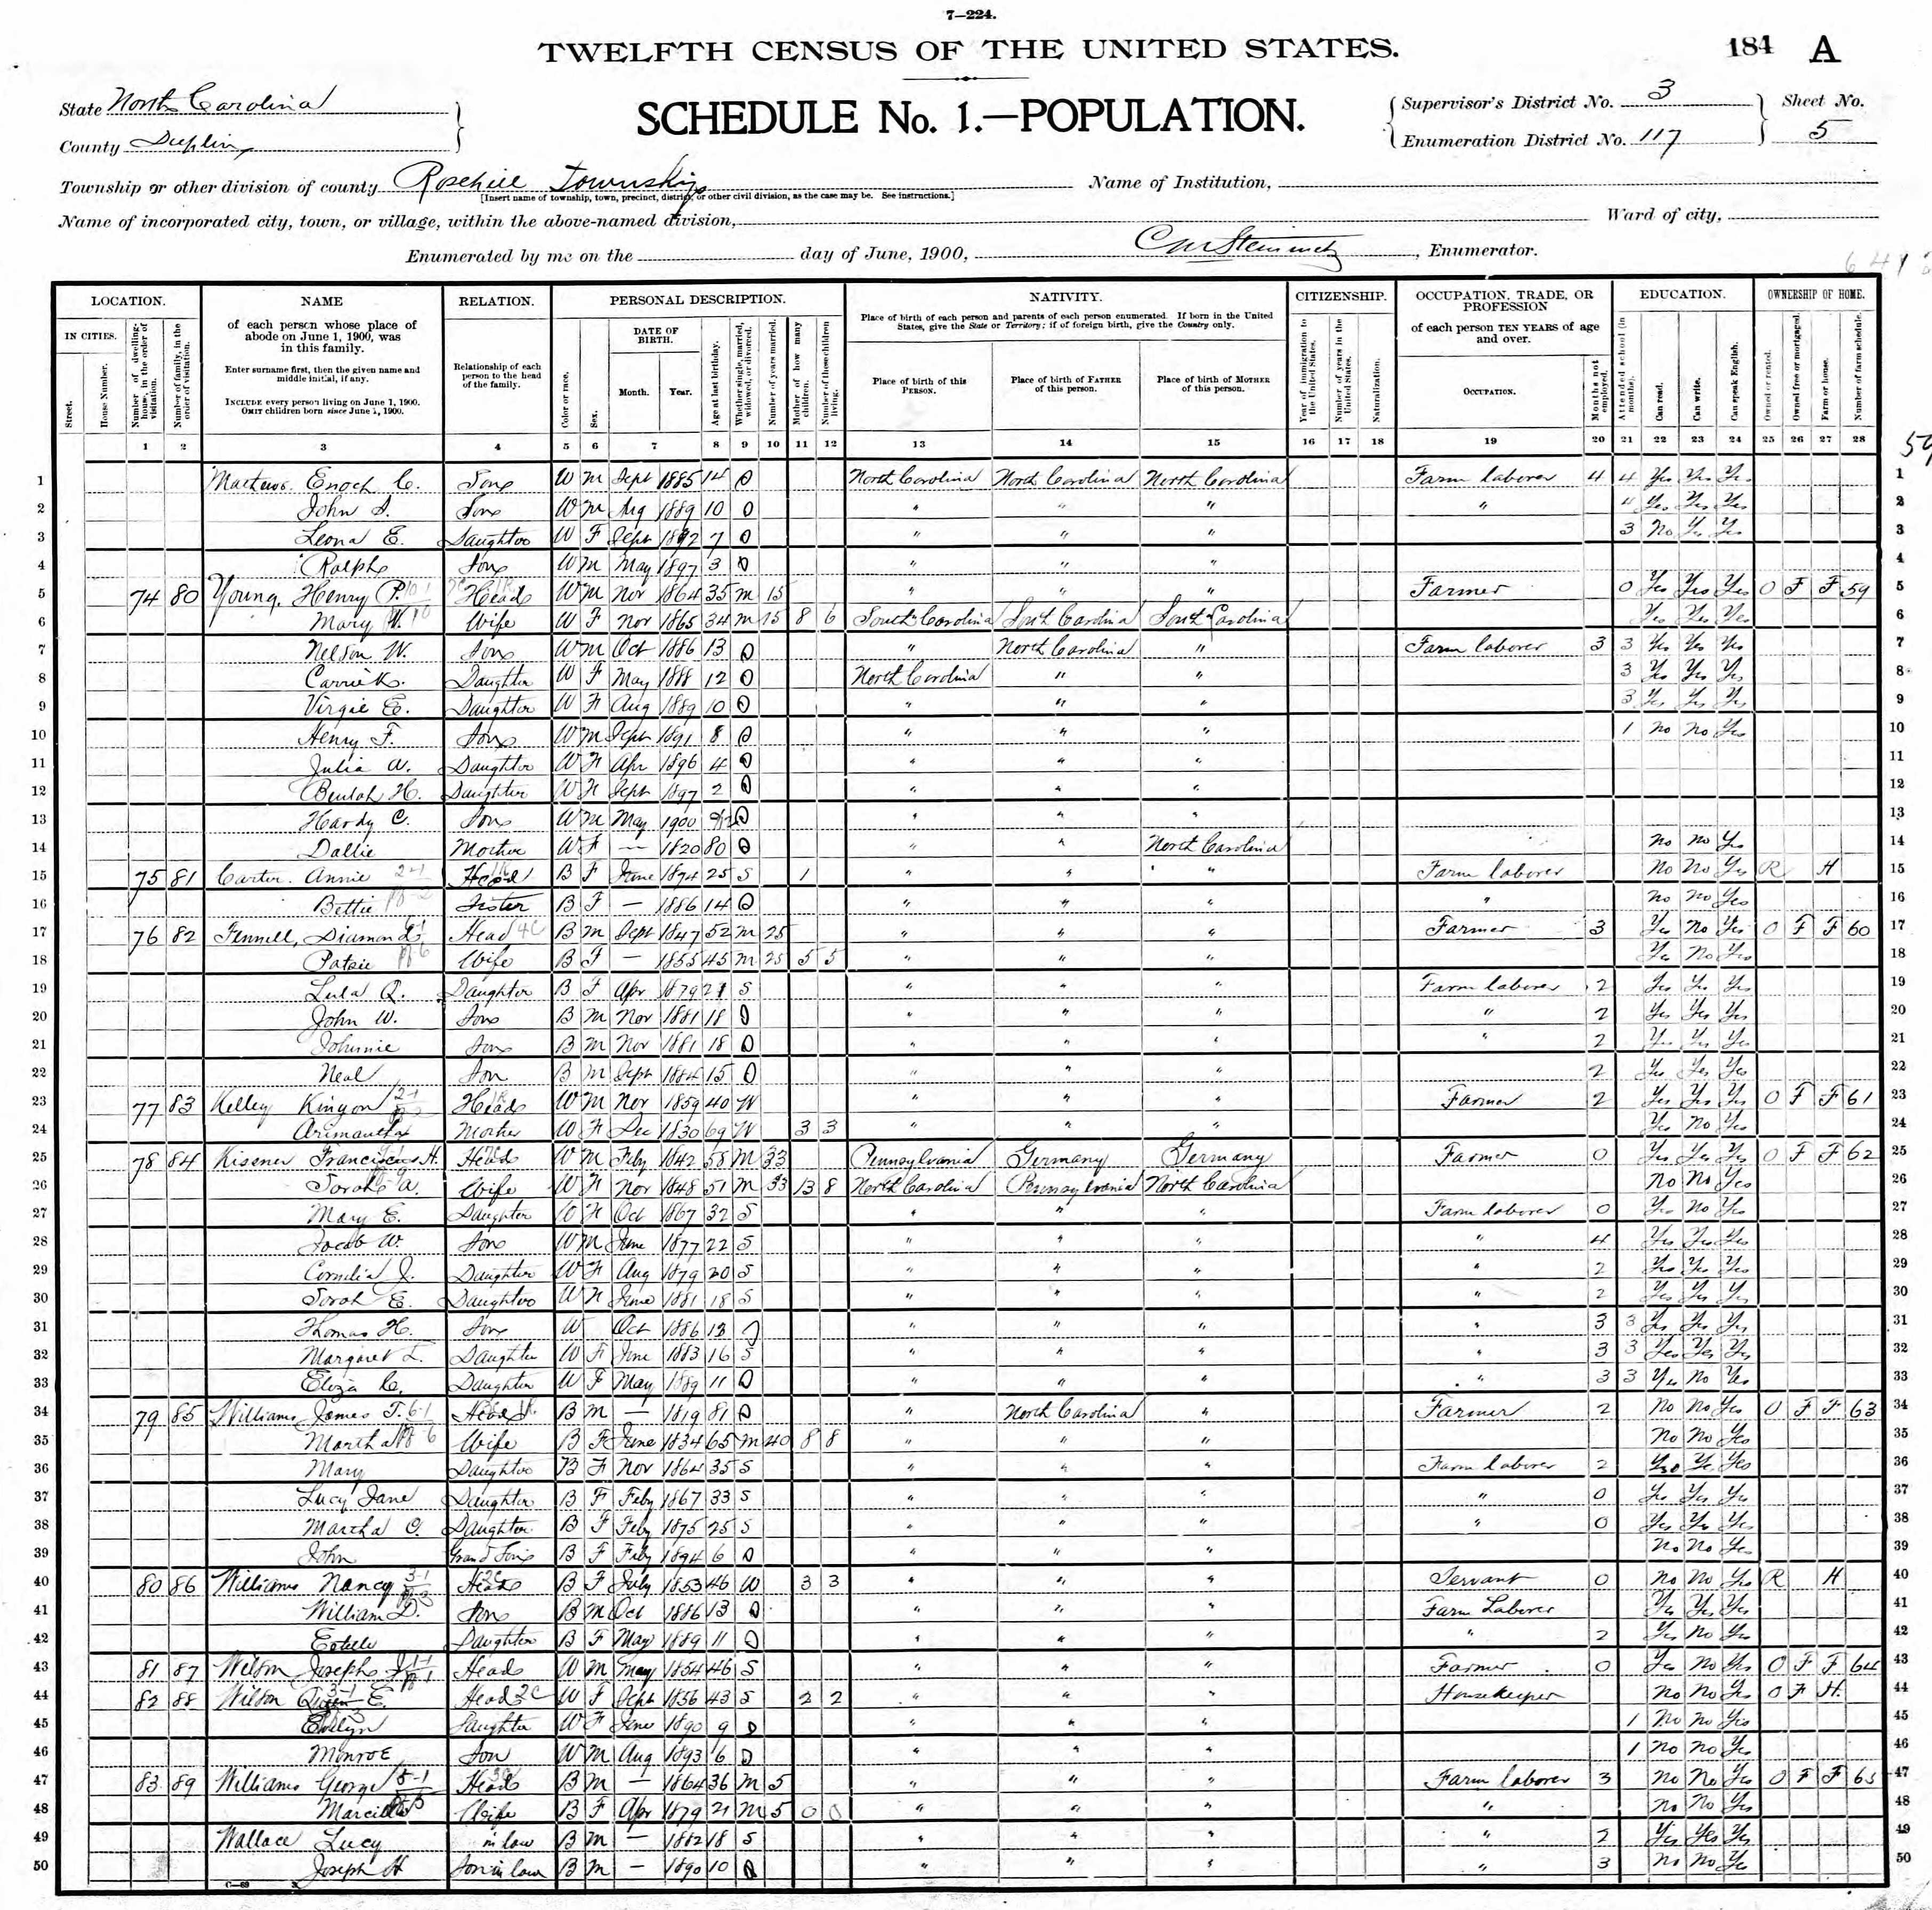 7—224.
TWELFTH CENSUS OF THE UNITED STATES.
184 A
State North Carolina
County Duplin
SCHEDULE No. 1.—POPULATION.
Supervisor's District No. 3
Enumeration District No. 117
Sheet No. 5
Township or other division of county Rosehill Township
[Insert name of township, town, precinct, district, or other civil division, as the case may be. See instructions.]
Name of Institution,
Name of incorporated city, town, or village, within the above-named division,
Ward of city,
Enumerated by me on the day of June, 1900, Enumerator.
LOCATION. NAME RELATION. PERSONAL DESCRIPTION. NATIVITY. CITIZENSHIP. OCCUPATION, TRADE, OR PROFESSION EDUCATION. OWNERSHIP OF HOME.
IN CITIES.
Street.
House Number.
Number of dwelling-house, in the order of visitation.
Number of family, in the order of visitation.
of each person whose place of abode on June 1, 1900, was in this family.
Enter surname first, then the given name and middle initial, if any.
INCLUDE every person living on June 1, 1900.
OMIT children born since June 1, 1900.
Relationship of each person to the head of the family.
Color or race.
Sex.
DATE OF BIRTH.
Month. Year.
Age at last birthday.
Whether single, married, widowed, or divorced.
Number of years married.
Mother of how many children.
Number of these children living.
Place of birth of each person and parents of each person enumerated. If born in the United States, give the State or Territory; if of foreign birth, give the Country only.
Place of birth of this PERSON.
Place of birth of FATHER of this person.
Place of birth of MOTHER of this person.
Year of immigration to the United States.
Number of years in the United States.
Naturalization.
of each person TEN YEARS of age and over.
OCCUPATION.
Months not employed.
Attended school (in months).
Can read.
Can write.
Can speak English.
Owned or rented.
Owned free or mortgaged.
Farm or house.
Number of farm schedule.
1 2 3 4 5 6 7 8 9 10 11 12 13 14 15 16 17 18 19 20 21 22 23 24 25 26 27 28
1 Enoch C. Son W M Sept 1885 14 North Carolina North Carolina North Carolina Farm laborer 4 4 Yes Yes Yes 1
2 John Son W M Aug 1889 10 " " " " 4 Yes Yes Yes 2
3 Leona E. Daughter W F Sept 1892 7 " " " 3 No Yes Yes 3
4 Ralph Son W M May 1897 3 " " " 4
5 74 80 Young, Henry P. Head W M Nov 1864 35 M 15 " " " Farmer 0 Yes Yes Yes O F F 59 5
6 Mary W. Wife W F Nov 1865 34 M 15 8 6 South Carolina South Carolina South Carolina Yes Yes Yes 6
7 Nelson W. Son W M Oct 1886 13 " North Carolina " Farm laborer 3 3 Yes Yes Yes 7
8 Carrie K. Daughter W F May 1888 12 North Carolina " " 3 Yes Yes Yes 8
9 Virgie E. Daughter W F Aug 1889 10 " " " 3 Yes Yes Yes 9
10 Henry F. Son W M Sept 1891 8 " " " 1 No No Yes 10
11 Julia W. Daughter W F Apr 1896 4 " " " 11
12 Beulah H. Daughter W F Sept 1897 2 " " " 12
13 Hardy C. Son W M May 1900 " " " 13
14 Dallie Mother W F — 1820 80 " " North Carolina No No Yes 14
15 75 81 Carter Annie Head B F June 1874 25 S 1 " " " Farm laborer No No Yes R H 15
16 Bettie Sister B F — 1886 14 " " " " No No Yes 16
17 76 82 Fennell, Diamond Head B M Sept 1847 52 M 25 " " " Farmer 3 Yes No Yes O F F 60 17
18 Patsie Wife B F — 1855 45 M 25 5 5 " " " Yes No Yes 18
19 Lula Q. Daughter B F Apr 1879 21 S " " " Farm laborer 2 Yes Yes Yes 19
20 John W. Son B M Nov 1881 18 " " " " 2 Yes Yes Yes 20
21 Johnnie Son B M Nov 1881 18 " " " " 2 Yes Yes Yes 21
22 Neal Son B M Sept 1884 15 " " " 2 Yes Yes Yes 22
23 77 83 Kelley Kinyon Head W M Nov 1859 40 W " " " Farmer 2 Yes Yes Yes O F F 61 23
24 Mother W F Dec 1830 69 W 3 3 " " " Yes No Yes 24
25 78 84 H. Head W M Feby 1842 58 M 33 Pennsylvania Germany Germany Farmer 0 Yes Yes Yes O F F 62 25
26 Sarah A. Wife W F Nov 1848 51 M 33 13 8 North Carolina Pennsylvania North Carolina No No Yes 26
27 Mary E. Daughter F Oct 1867 32 S " " " Farm laborer 0 Yes No Yes 27
28 Jacob W. Son W M June 1877 22 S " " " " 4 Yes Yes Yes 28
29 Cornelia J. Daughter W F Aug 1879 20 S " " " " 2 Yes Yes Yes 29
30 Sarah E. Daughter W F June 1881 18 S " " " " 2 Yes Yes Yes 30
31 Thomas H. Son W Oct 1886 13 " " " " 3 3 Yes Yes Yes 31
32 Margaret L. Daughter W F June 1883 16 S " " " " 3 3 Yes Yes Yes 32
33 Eliza C. Daughter W F May 1889 11 " " " " 3 3 Yes No Yes 33
34 79 85 Williams James T. Head B M — 1819 81 " North Carolina " Farmer 2 No No Yes O F F 63 34
35 Martha Wife B F June 1834 65 M 40 8 8 " " " No No Yes 35
36 Mary Daughter B F Nov 1864 35 S " " " Farm laborer 2 Yes Yes Yes 36
37 Lucy Jane Daughter B F Feby 1867 33 S " " " " 0 Yes Yes Yes 37
38 Martha O. Daughter B F Feby 1875 25 S " " " " 0 Yes Yes Yes 38
39 John Grand Son B F Feby 1894 6 " " " No No Yes 39
40 80 86 Williams Nancy Head B F July 1853 46 W 3 3 " " " Servant 0 No No Yes R H 40
41 William D. Son B M Oct 1886 13 " " " Farm Laborer Yes Yes Yes 41
42 Daughter B F May 1889 11 " " " " 2 Yes No Yes 42
43 81 87 Wilson Joseph J. Head W M May 1854 46 S " " " Farmer 0 Yes No Yes O F F 64 43
44 82 88 Wilson Queen E. Head W F Sept 1856 43 S 2 2 " " " Housekeeper No No Yes O F H 44
45 Evelyn Daughter W F June 1890 9 " " " 1 No No Yes 45
46 Monroe Son W M Aug 1893 6 " " " 1 No No Yes 46
47 83 89 Williams George Head B M — 1864 36 M 5 " " " Farm laborer 3 No No Yes O F F 65 47
48 Wife B F Apr 1879 21 M 5 0 0 " " " " No No Yes 48
49 Wallace Lucy in law B M — 1882 18 S " " " " 2 Yes Yes Yes 49
50 Joseph H Son in law B M — 1890 10 " " " " 3 No No Yes 50